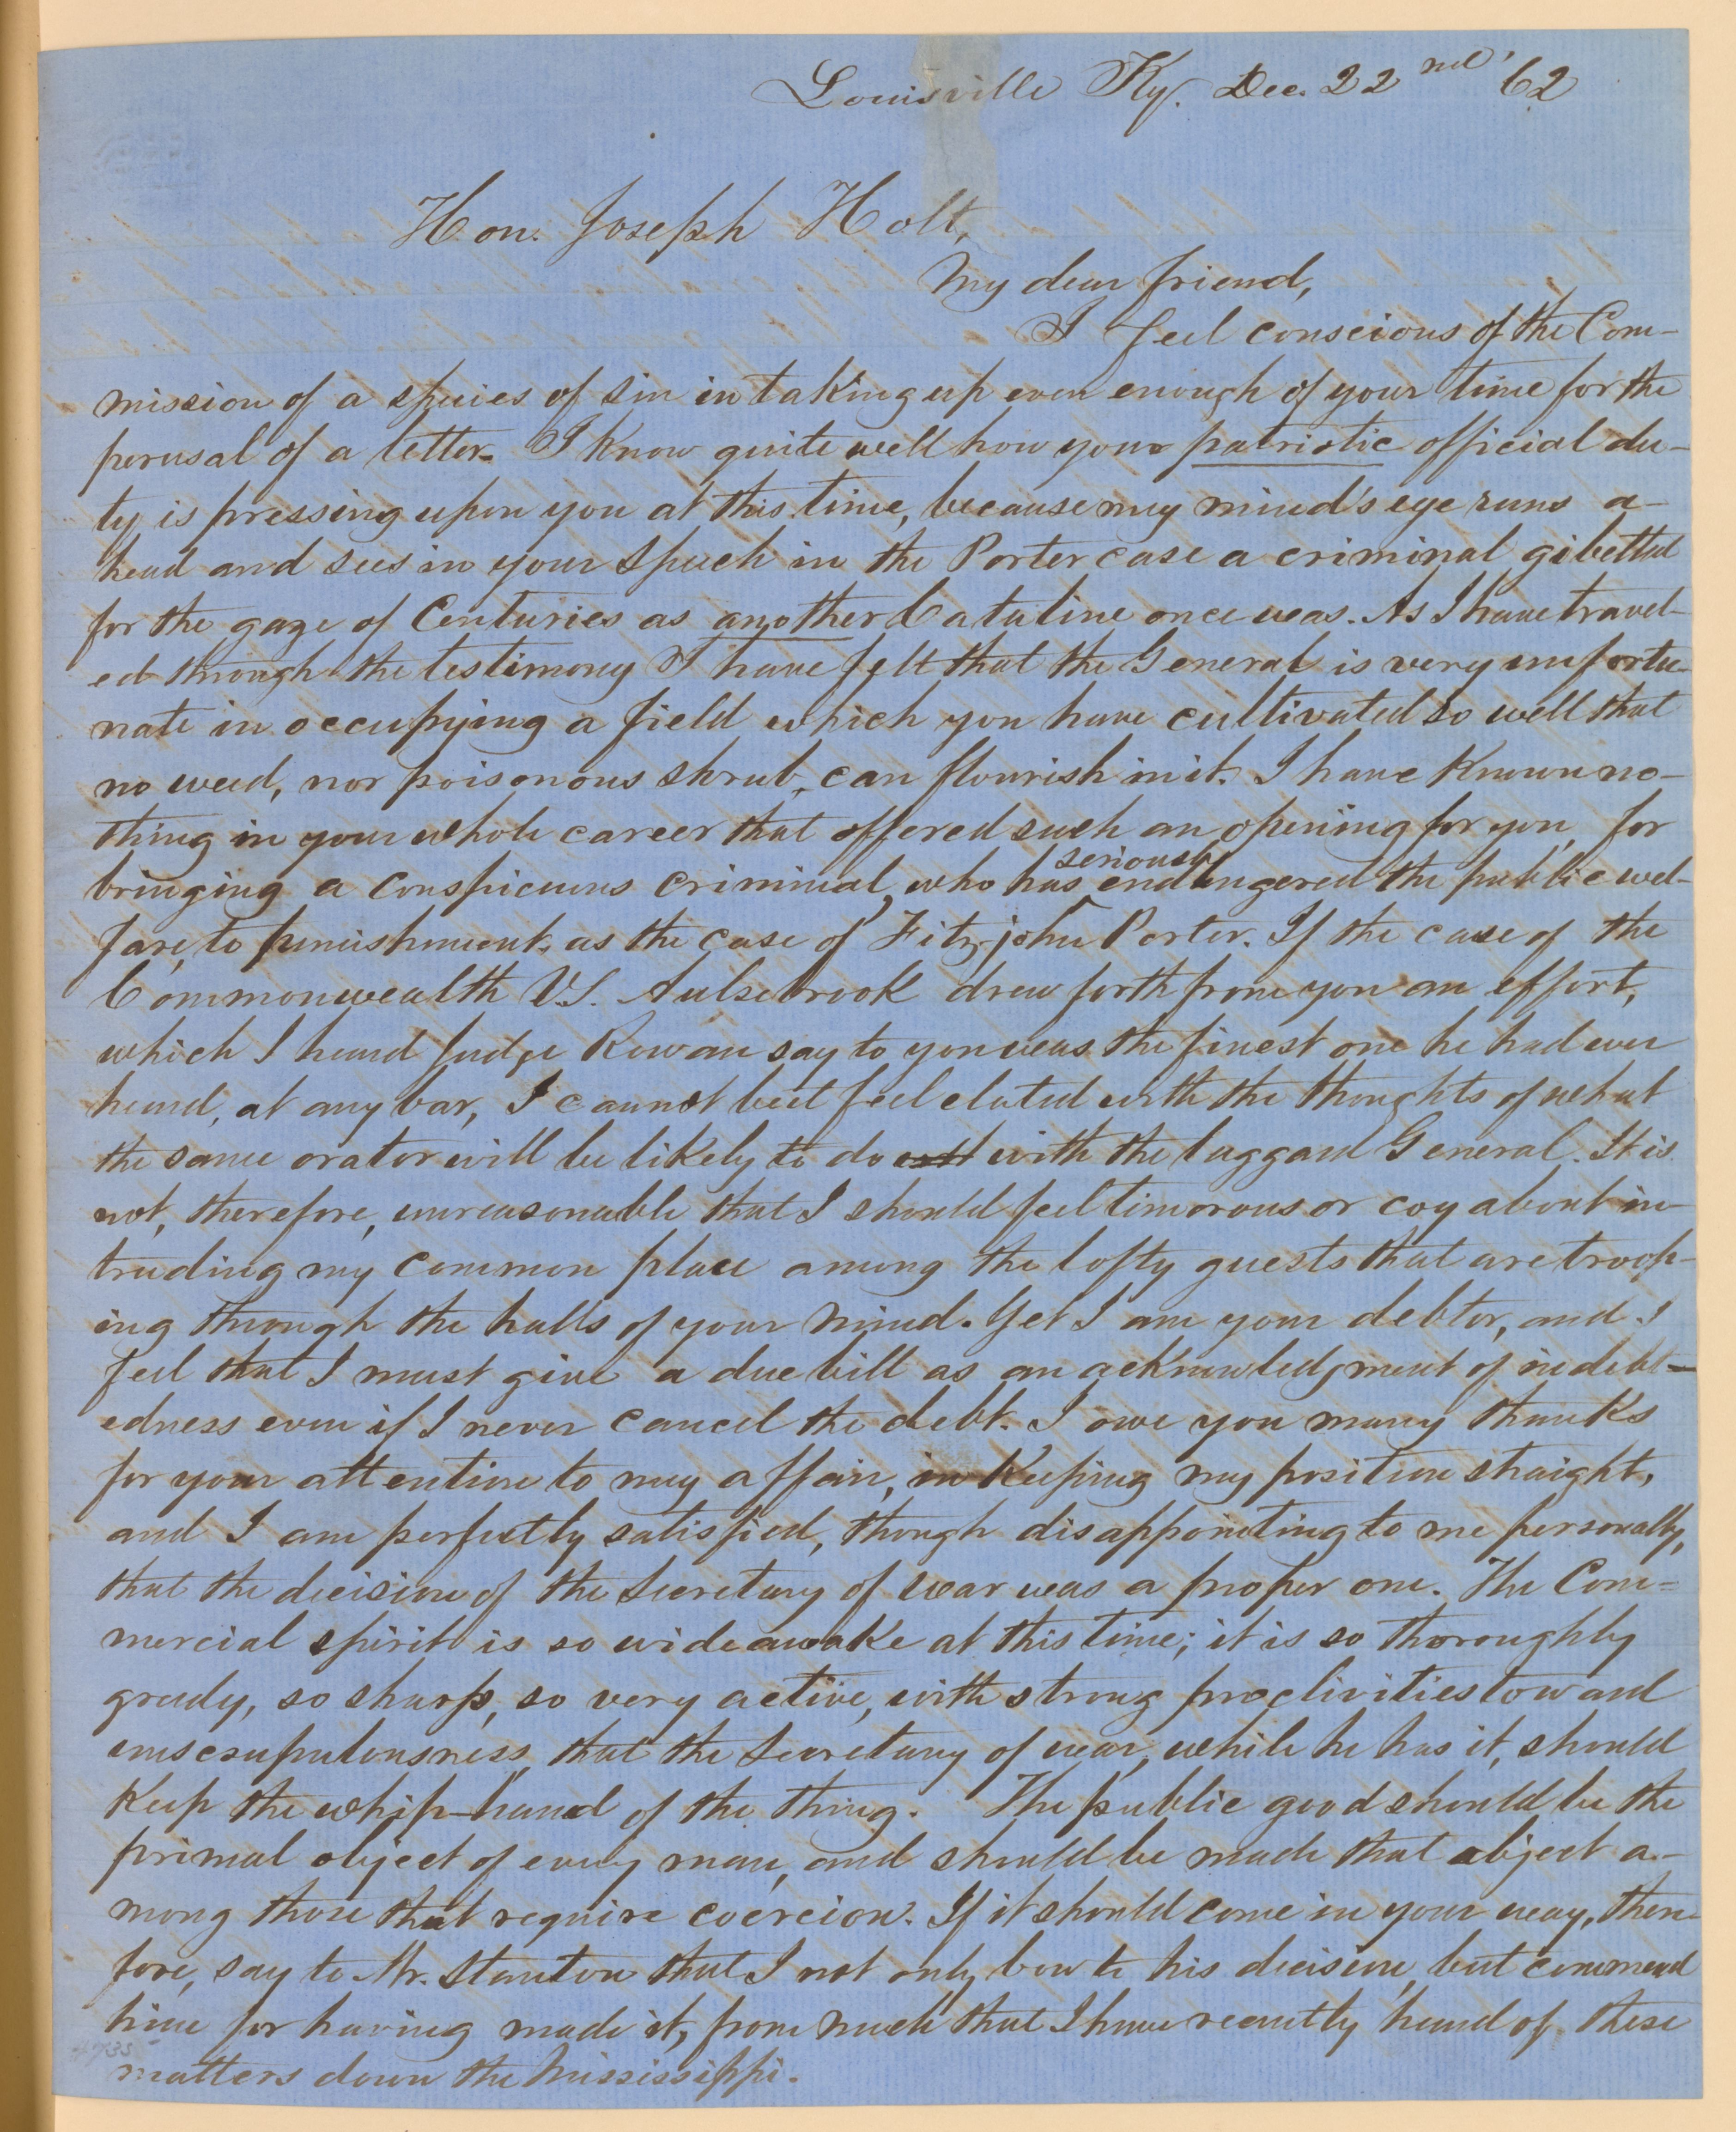 Louisville Ky. Dec. 22nd, 62
Hon. Joseph Holt,
My dear friend,
I feel conscious of the Com-
mission of a species of sin in taking up even enough of your time for the
perusal of a letter. I know quite well how your patriotic official du-
ty is pressing upon you at this time, because my mind's eye runs a-
head and sees in your speech in the Porter case a criminal gibetted
for the gaze of Centuries as another Cataline once was. As I have travel-
ed through the testimony I have felt that the General is very unfortu-
nate in occupying a field which you have cultivated so well that
no weed, nor poisonous shrub, can flourish in it. I have known no-
thing in your whole career that offered such an opening for you, for
bringing a conspicuous criminal, who has seriously endangered the public wel-
fare, to punishment, as the case of Fitz-john Porter. If the case of the
Commonwealth VS. Aulsebrook drew forth from you an effort,
which I heard Judge Rowan say to you was the finest one he had ever
heard, at any bar, I cannot but feel elated with the thoughts of what
the same orator will be likely to do with the laggard General. It is
not, therefore, unreasonable that I should feel timorous or coy about in-
truding my common place among the lofty guests that are troop-
ing through the halls of your mind. Yet I am your debtor, and I
feel that I must give a due bill as an acknowledgment of indebt-
edness even if I never cancel the debt. I owe you many thanks
for your attention to my affair, in keeping my position straight,
and I am perfectly satisfied, though disappointing to me personally,
that the decision of the Secretary of war was a proper one. The Com-
mercial spirit is so wide awake at this time; it is so thoroughly
greedy, so sharp, so very active, with strong proclivities toward
unscrupulousness, that the Secretary of war, while he has it, should
keep the whip-hand of the thing. The public good should be the
primal object of every man, and should be made that object a-
mong those that require coercion. If it should come in your way, there-
fore, say to Mr. Stanton that I not only bow to his decision, but commend
him for having made it, from much that I have recently heard of these
matters down the Mississippi.